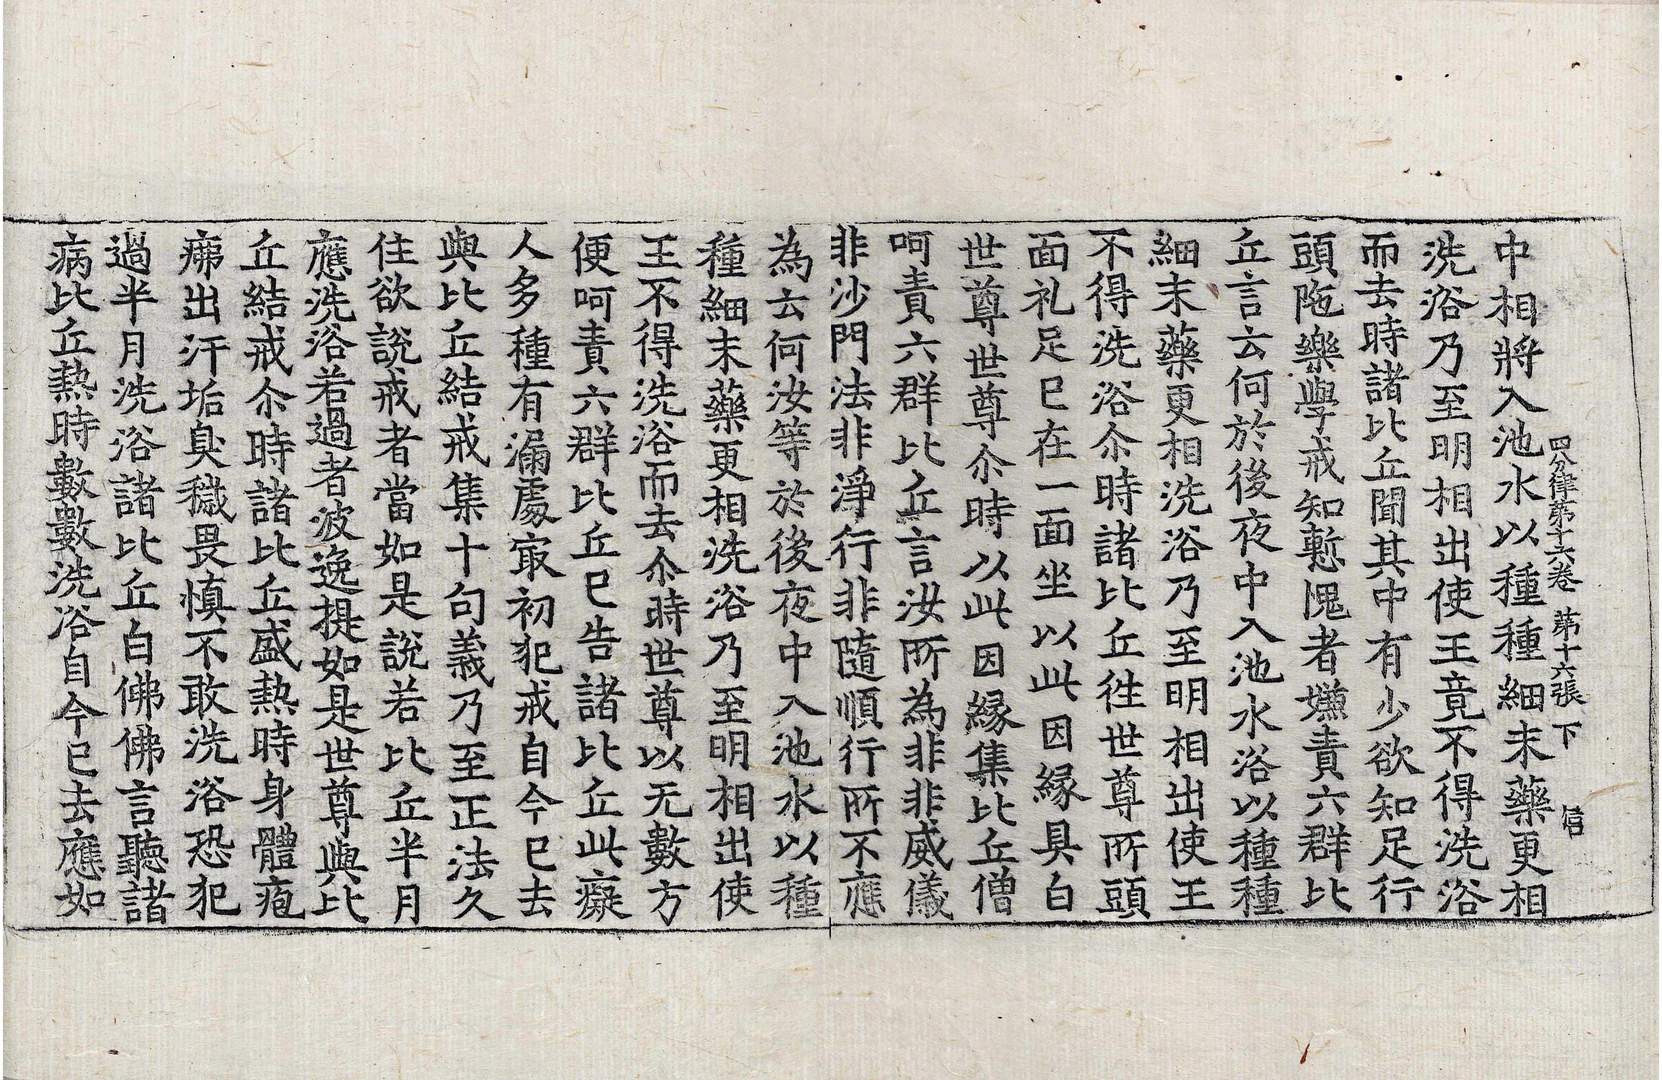 四分律第十六卷 第十六張 下 信
中相將入池水以種種細末藥更相
洗浴乃至明相出使王竟不得洗浴
而去時諸比丘聞其中有少欲知足行
頭陁樂學戒知慙愧者嫌責六群比
丘言云何於後夜中入池水浴以種種
細末藥更相洗浴乃至明相出使王
不得洗浴尒時諸比丘徃世尊所頭
面礼足已在一面坐以此因縁具白
世尊世尊尒時以此因縁集比丘僧
呵責六群比丘言汝所為非非威儀
非沙門法非淨行非隨順行所不應
為云何汝等於後夜中入池水以種
種細末藥更相洗浴乃至明相出使
王不得洗浴而去尒時世尊以无數方
便呵責六群比丘已告諸比丘此癡
人多種有漏處㝡初犯戒自今已去
與比丘結戒集十句義乃至正法久
住欲說戒者當如是說若比丘半月
應洗浴若過者波逸提如是世尊與比
丘結戒尒時諸比丘盛熱時身體疱
疿出汗垢臭穢畏慎不敢洗浴恐犯
過半月洗浴諸比丘白佛佛言聽諸
病比丘熱時數數洗浴自今已去應如